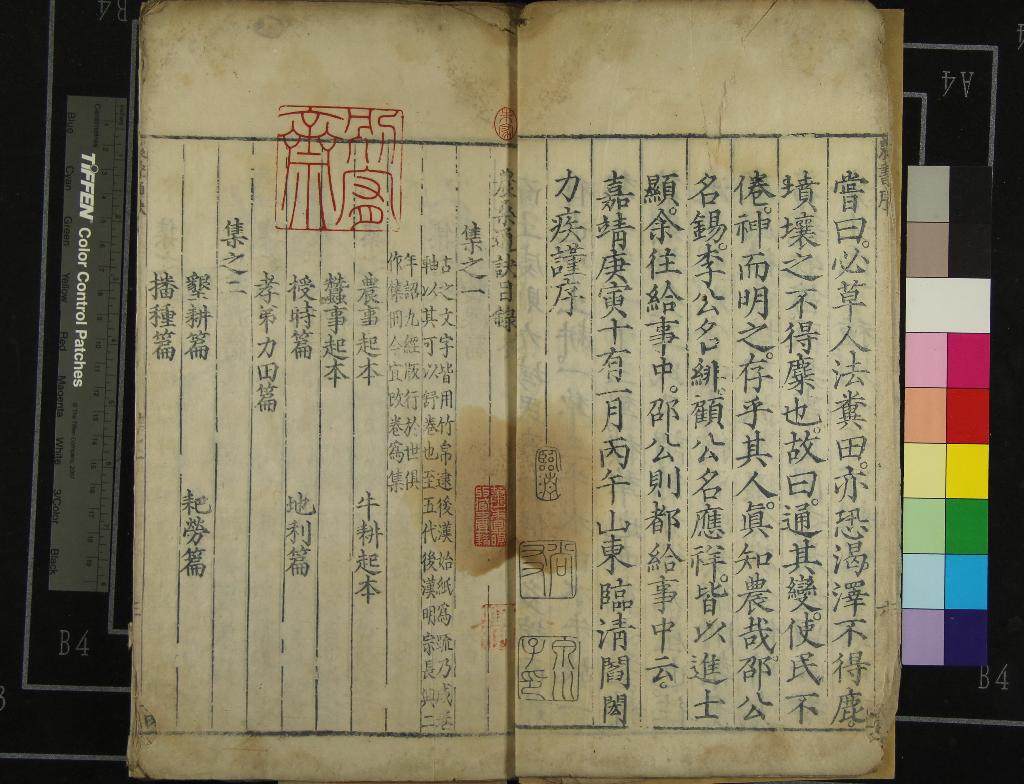 嘗曰必草人法糞田亦恐渴澤不得鹿
墳壤之不得麋也故曰通其變使民不
倦神而明之存乎其人眞知農哉邵公
名錫李公名緋顧公名應祥皆以進士
顯余往給事中邵公則都給事中云
嘉靖庚寅十有一月丙午山東臨清閻閎
力疾謹序
臨清
農桑通訣目錄
集之一
古之文字皆用竹帛逮後漢始紙為疏乃成
軸以其可以舒卷也至五代後漢明宗長興二
年詔九經版行於世俱
作集冊今宜改卷為集
農事起本
牛耕起本
蠶事起本
授時篇
地利篇
孝弟力田篇
集之二
墾耕篇
耙勞篇
播種篇
TIFFEN Color Control Patches
Blue
Cyan
Green
Yellow
Red
Magenta
White
3/Color
Black
A4
B4
B4
B4